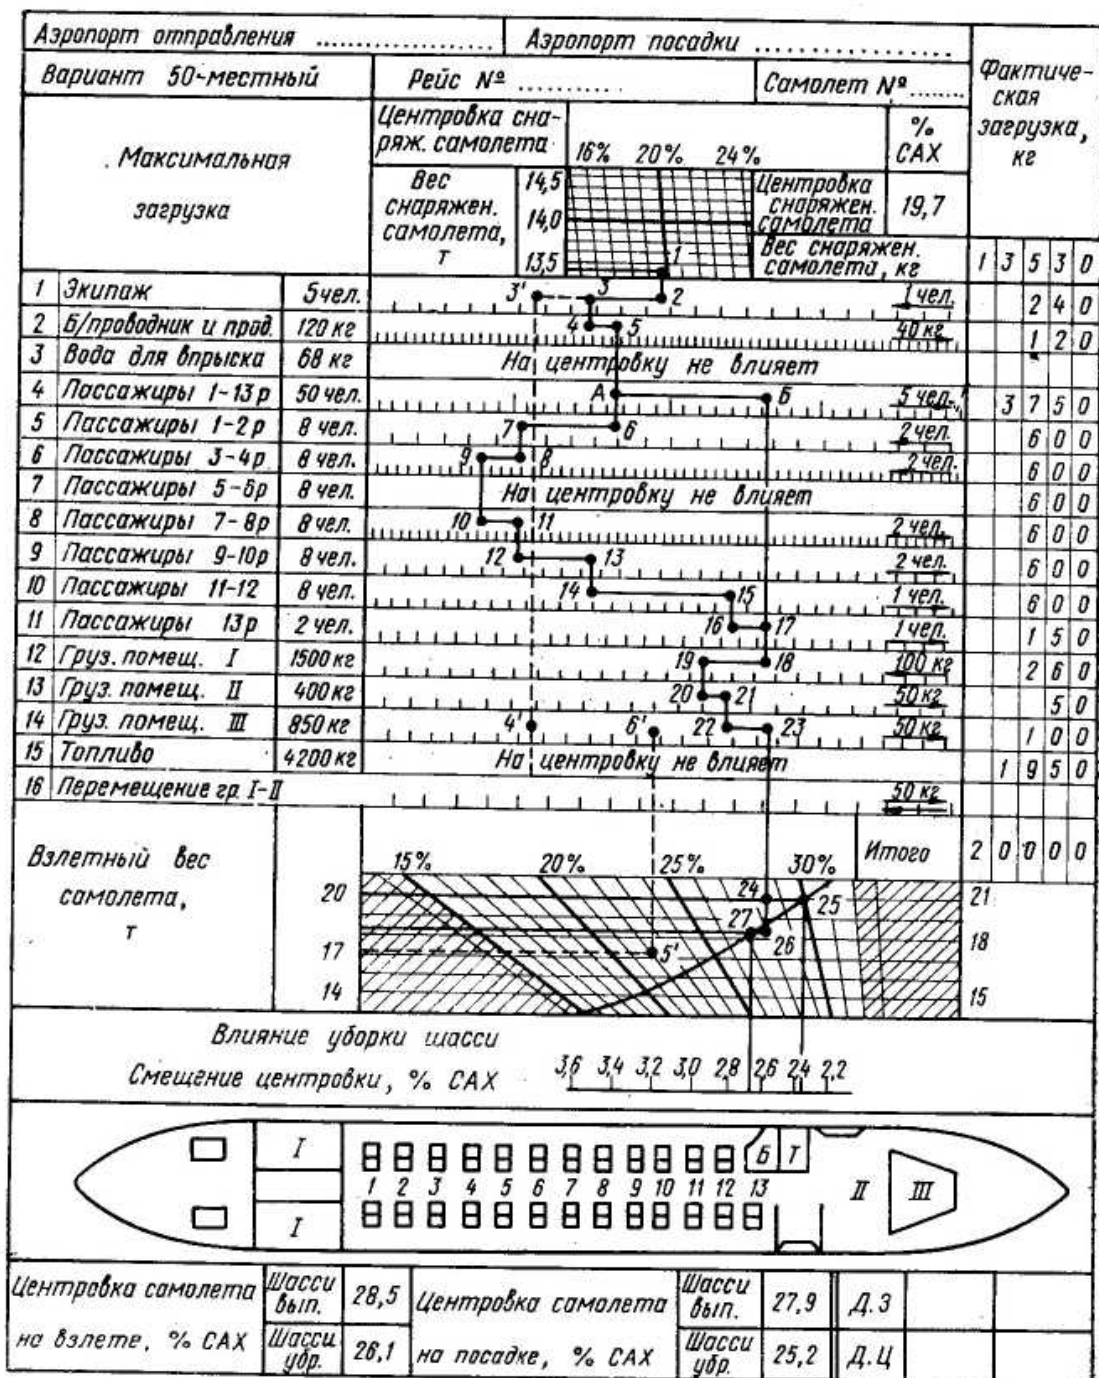 Аэропорт отправления ............ Аэропорт посадки ............
Вариант 50-местный Рейс № ............ Самолет № ......
Фактиче-
ская
загрузка,
кг
Максимальная
загрузка
Центровка сна-
ряж. самолета
16% 20% 24%
%
САХ
Вес
снаряжен.
самолета,
т
14,5
14,0
13,5
1
Центровка
снаряжен.
самолета
19,7
Вес снаряжен.
самолета, кг
1 3 5 3 0
1 Экипаж 5 чел. 3' 3 2 1 чел. 2 4 0
2 Б/проводник и прод. 120 кг 4 5 40 кг 1 2 0
3 Вода для впрыска 68 кг На центровку не влияет
4 Пассажиры 1-13 р 50 чел. А Б 5 чел. 3 7 5 0
5 Пассажиры 1-2 р 8 чел. 7 6 2 чел. 6 0 0
6 Пассажиры 3-4р 8 чел. 9 8 2 чел. 6 0 0
7 Пассажиры 5-6р 8 чел. На центровку не влияет 6 0 0
8 Пассажиры 7-8р 8 чел. 10 11 2 чел. 6 0 0
9 Пассажиры 9-10р 8 чел. 12 13 2 чел. 6 0 0
10 Пассажиры 11-12 8 чел. 14 15 1 чел. 6 0 0
11 Пассажиры 13р 2 чел. 16 17 1 чел. 1 5 0
12 Груз. помещ. I 1500 кг 19 18 100 кг 2 6 0
13 Груз. помещ. II 400 кг 20 21 50 кг 5 0
14 Груз. помещ. III 850 кг 4' 6' 22 23 50 кг 1 0 0
15 Топливо 4200 кг На центровку не влияет 1 9 5 0
16 Перемещение гр. I-II 50 кг
Взлетный вес
самолета,
т
15% 20% 25% 30% Итого 2 0 0 0 0
20 24 25 21
27 26 18
17 5'
14 15
Влияние уборки шасси
Смещение центровки, % САХ 3,6 3,4 3,2 3,0 2,8 2,6 2,4 2,2
I Б Т
1 2 3 4 5 6 7 8 9 10 11 12 13 II III
I
Центровка самолета
на взлете, % САХ
Шасси
вып.
28,5
Шасси
убр.
26,1
Центровка самолета
на посадке, % САХ
Шасси
вып.
27,9
Шасси
убр.
25,2
Д.З
Д.Ц